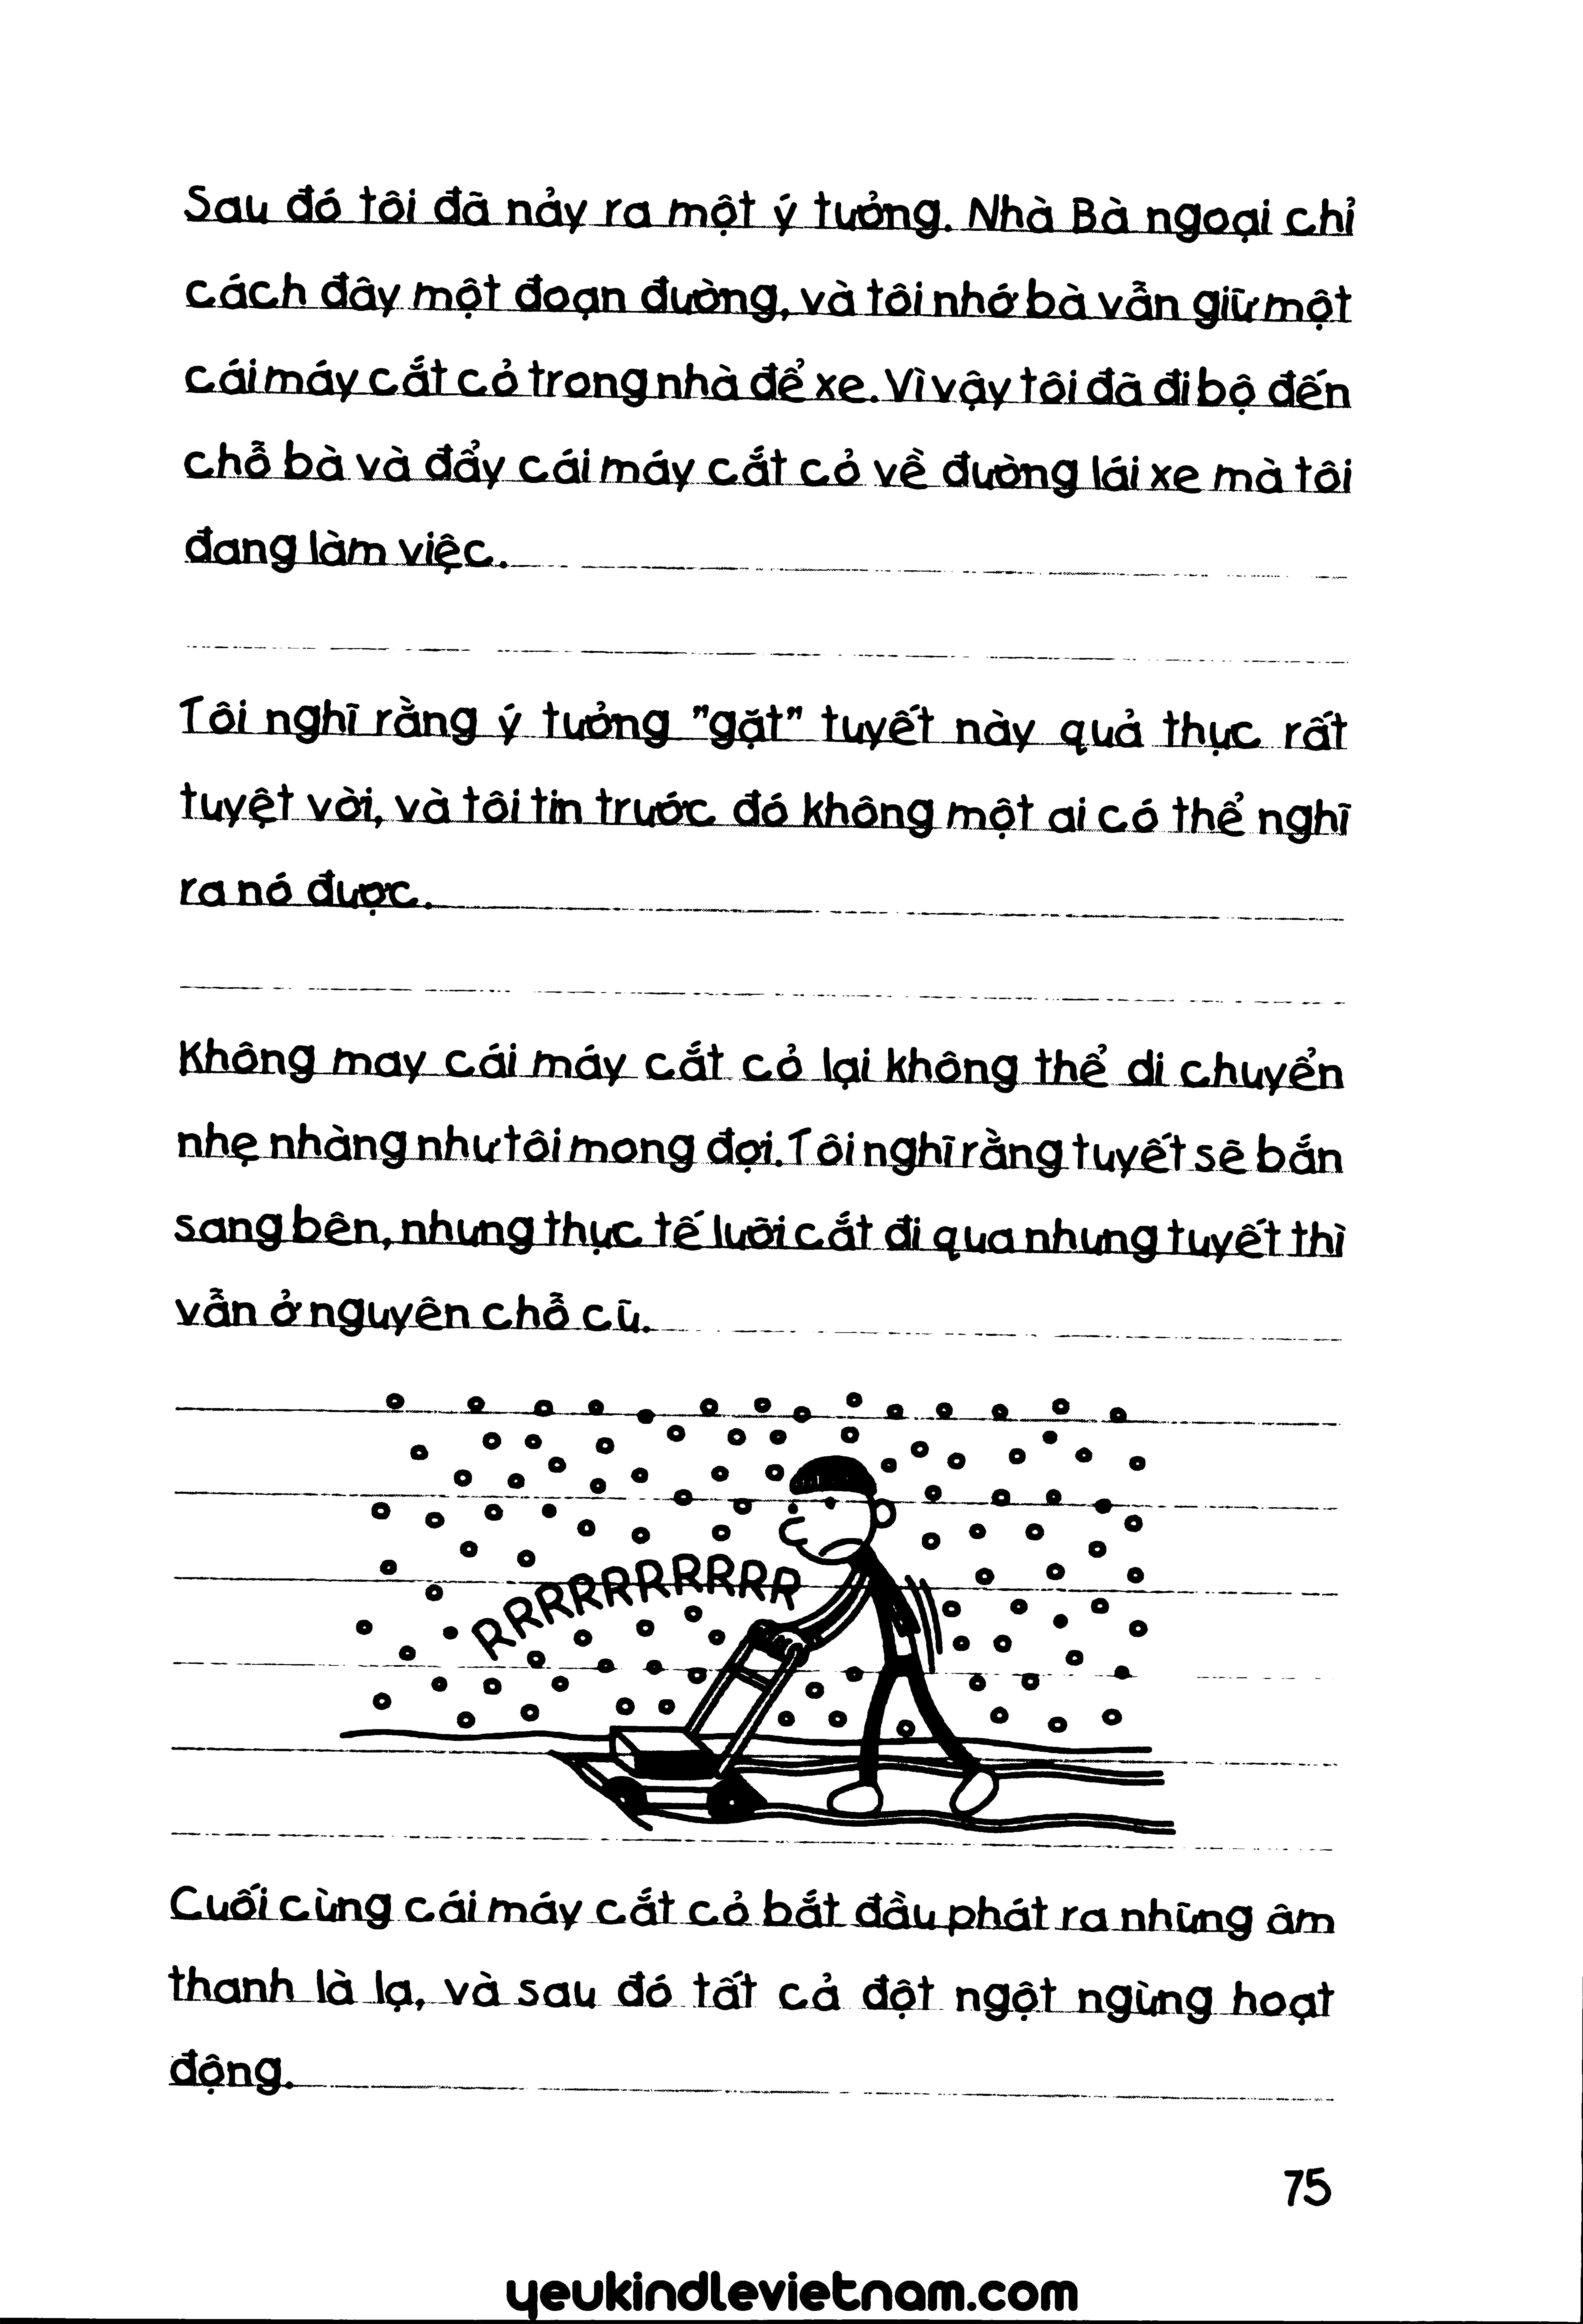 Sau đó tôi đã nảy ra một ý tưởng. Nhà Bà ngoại chỉ
cách đây một đoạn đường, và tôi nhớ bà vẫn giữ một
cái máy cắt cỏ trong nhà để xe. Vì vậy tôi đã đi bộ đến
chỗ bà và đẩy cái máy cắt cỏ về đường lái xe mà tôi
đang làm việc.
Tôi nghĩ rằng ý tưởng "gặt" tuyết này quả thực rất
tuyệt vời, và tôi tin trước đó không một ai có thể nghĩ
ra nó được.
Không may cái máy cắt cỏ lại không thể di chuyển
nhẹ nhàng như tôi mong đợi. Tôi nghĩ rằng tuyết sẽ bắn
sang bên, nhưng thực tế lưỡi cắt đi qua nhưng tuyết thì
vẫn ở nguyên chỗ cũ.
RRRRRRRRRR
Cuối cùng cái máy cắt cỏ bắt đầu phát ra những âm
thanh là lạ, và sau đó tất cả đột ngột ngừng hoạt
động.
75
yeukindlevietnam.com